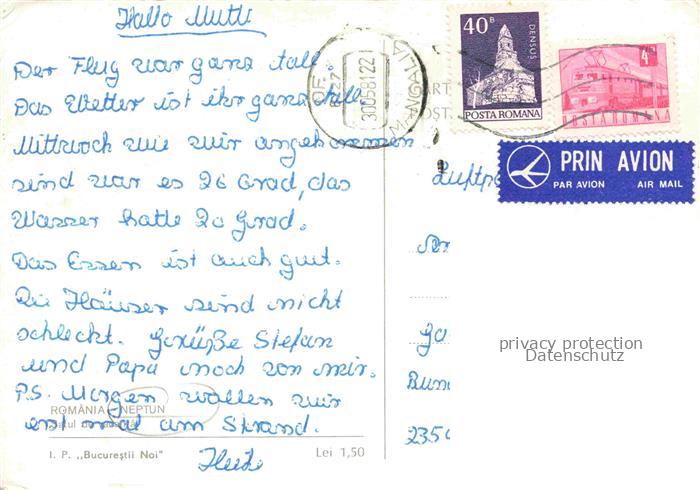 Hallo Mutti
Der Flug war ganz toll.
Das Wetter ist ihr ganz toll.
Mittwoch wie wir angekommen
sind war es 26 Grad, das
Wasser hatte 20 Grad.
Das Essen ist auch gut.
Die Häuser sind nicht
schleckt. Grüße Stefan
und Papa noch von mir.
P.S. Morgen wollen wir
erst mal am Strand.
ROMÂNIA - NEPTUN
I. P. „Bucureştii Noi"
Lei 1,50
MANGALIA
40B
DENSUŞ
POSTA ROMANA
4L
POSTA ROMANA
PRIN AVION
PAR AVION AIR MAIL
privacy protection
Datenschutz